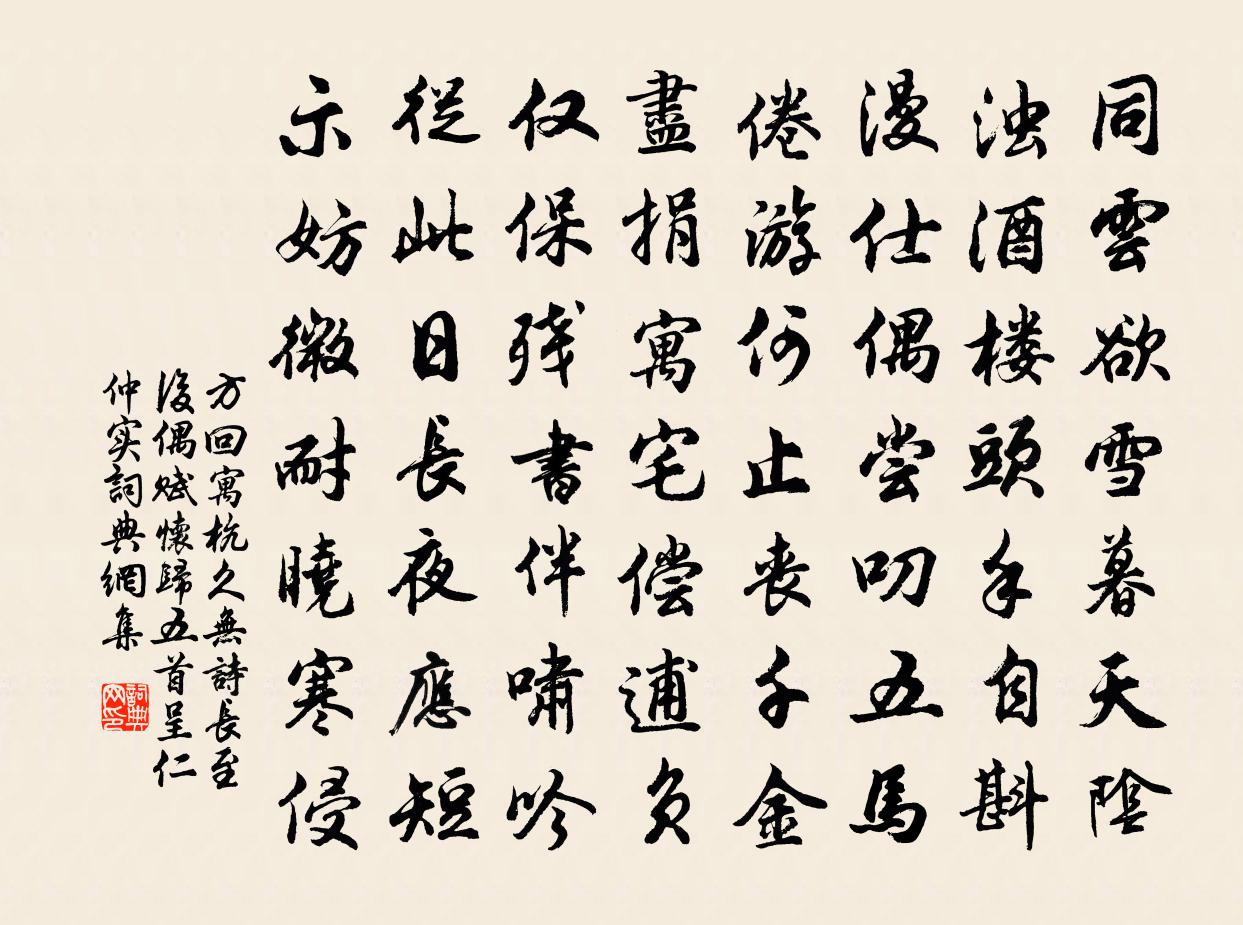 同雲欲雪暮天陰
浊酒楼頭手自斟
漫仕偶尝叨五馬
倦游何止丧千金
盡捐寓宅偿逋負
仅保残書伴嘯吟
從此日長夜應短
示妨微耐曉寒侵
方回寓杭久無詩長至
後偶赋懷歸五首呈仁
仲实詞典網集
詞典
网印